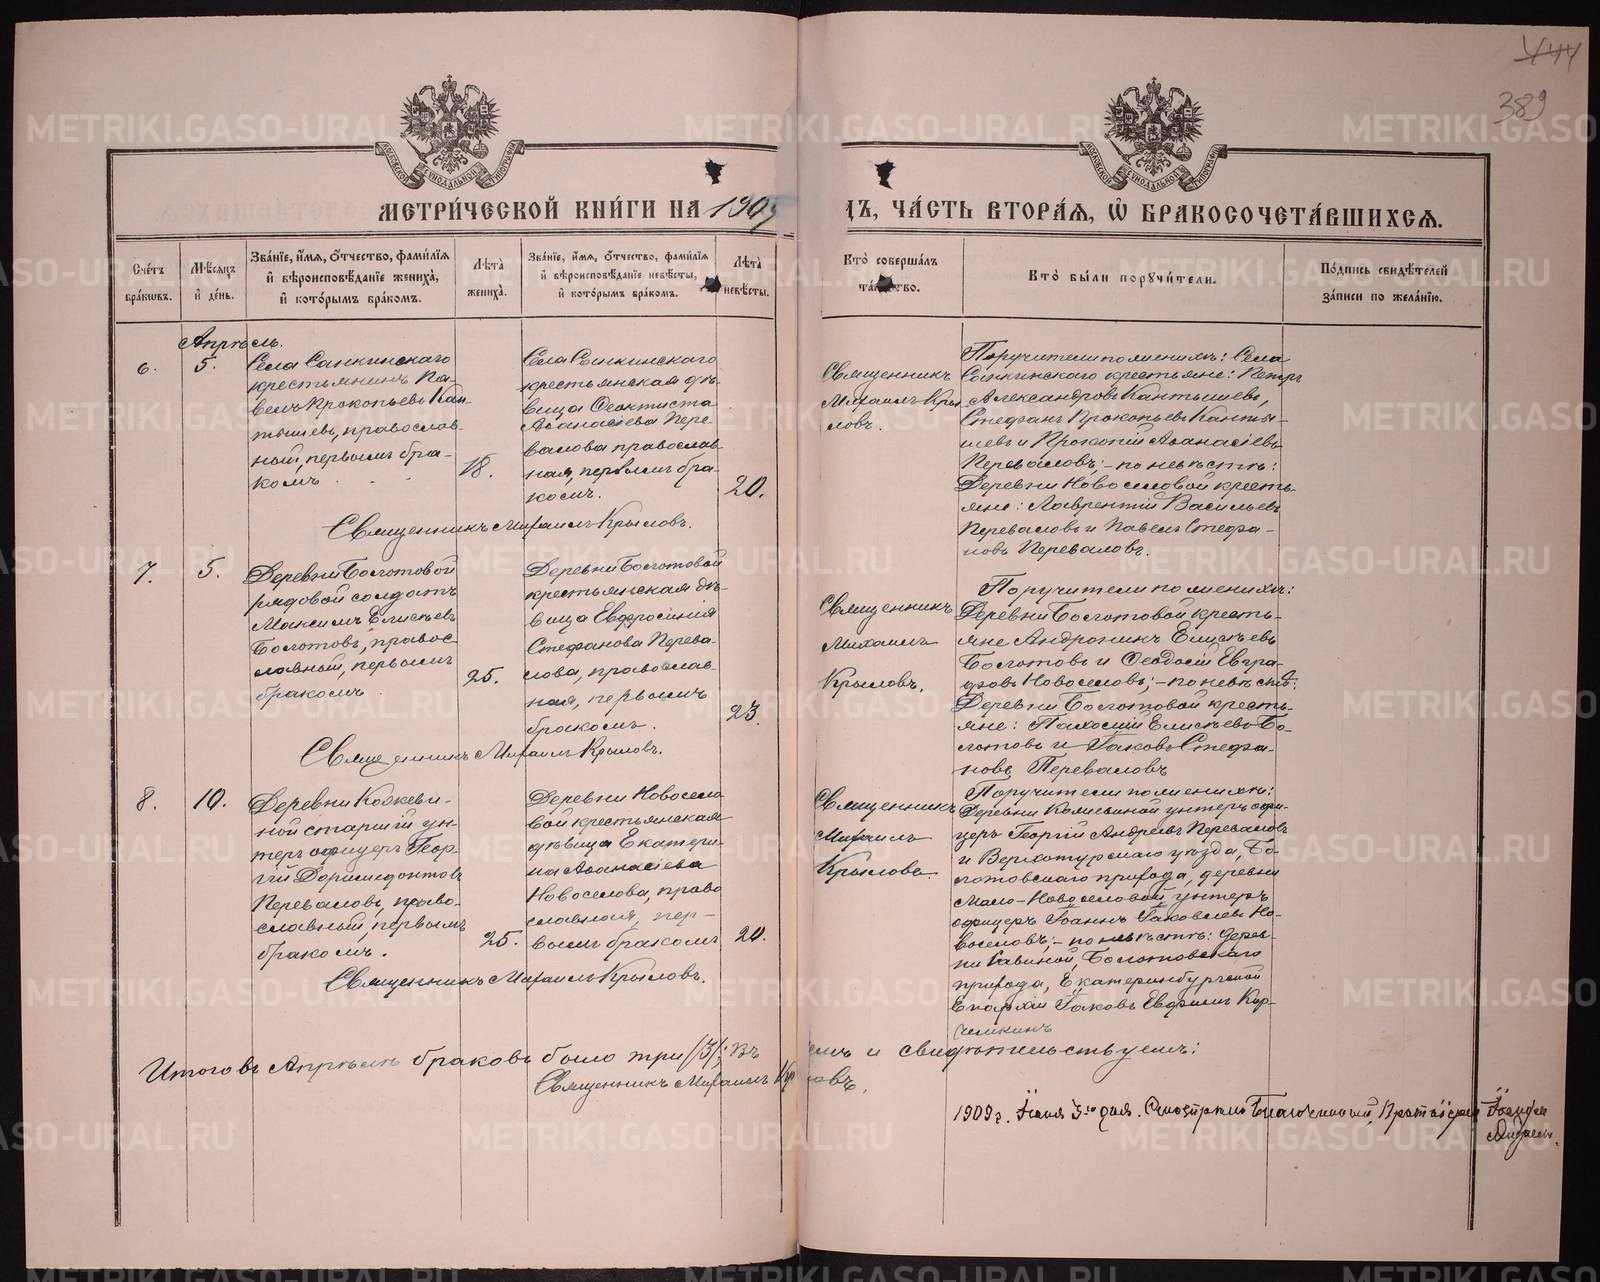 444
389
МЕТРИ́ЧЕСКОЙ КНИ́ГИ НА 1909
ДЪ, ЧА́СТЬ ВТОРА́Я, Ѽ БРАКОСОЧЕТА́ВШИХСЯ.
Сче́тъ бра́ковъ.
Мѣ́сяцъ и҆ де́нь.
Зва́нїе, и҆́мя, ѻ҆́тчество, фами́лїя и҆ вѣроисповѣ́данїе жениха̀, и҆ кото́рымъ бра́комъ.
Лѣ́та жениха̀.
Зва́нїе, и҆́мя, ѻ҆́тчество, фами́лїя и҆ вѣроисповѣ́данїе невѣ́сты, и҆ кото́рымъ бра́комъ.
Лѣ́та невѣ́сты.
Кто̀ соверша́лъ та́инство.
Кто̀ бы́ли поручи́тели.
По́дпись свидѣ́телей за́писи по жела́нїю.
Апрѣль.
6.
5.
Села Санкинскаго
крестьянинъ Па-
велъ Прокопьевъ Кан-
тышевъ, православ-
ный, первымъ бра-
комъ
18.
Села Санкинскаго
крестьянская дѣ-
вица Ѳеоктиста
Аѳанасіева Пере-
валова православ-
ная, первымъ бра-
комъ.
20.
Священникъ
Михаилъ Кры
ловъ.
Поручители по женихѣ: Села
Санкинскаго крестьяне: Петръ
Александровъ Кантышевъ,
Стефанъ Прокопьевъ Канты-
шевъ и Прокопій Аѳанасіевъ
Переваловъ; - по невѣстѣ:
Деревни Новоселовой кресть-
яне: Лаврентій Васильевъ
Переваловъ и Павелъ Стефа-
новъ Переваловъ.
Священникъ Михаилъ Крыловъ.
7.
5.
Деревни Болотовой
рядовой солдатъ
Максимъ Елисѣевъ
Болотовъ, правос-
лавный, первымъ
бракомъ.
25.
Деревни Болотовой
крестьянская дѣ-
вица Евфросинія
Стефанова Перева-
лова, православ-
ная, первымъ
бракомъ.
23.
Священникъ
Михаилъ
Крыловъ.
Поручители по женихѣ:
Деревни Болотовой кресть-
яне Андроникъ Елисѣевъ
Болотовъ и Ѳеодосій Евгра-
фовъ Новоселовъ; - по невѣстѣ:
Деревни Болотовой кресть-
яне: Пахомій Елисѣевъ Бо-
лотовъ и Іаковъ Стефа-
новъ Переваловъ
Священникъ Михаилъ Крыловъ.
8.
10.
Деревни Кожеви-
ной старшій ун-
теръ офицеръ Геор-
гій Доримедонтовъ
Переваловъ, право-
славный, первымъ
бракомъ.
25.
Деревни Новосело
вой крестьянская
дѣвица Екатери-
на Аѳанасіева
Новоселова, право
славная, пер-
вымъ бракомъ
20.
Священникъ
Михаилъ
Крыловъ.
Поручители по женихѣ:
Деревни унтеръ офи-
церъ Георгій Андреевъ Переваловъ
и Верхотурскаго уѣзда, Бо-
лотовскаго прихода, деревни
Мало-Новоселовой унтеръ
офицеръ Іоаннъ Іаковлевъ Но-
воселовъ; - по невѣстѣ: дерев-
ни Болотовскаго
прихода, Екатеринбургской
Епархіи Іаковъ Евфимъ Кор-
чемкинъ
Священникъ Михаилъ Крыловъ.
Итого въ Апрѣлѣ браковъ было три (3); въ чемъ и свидѣтельствуемъ:
Священникъ Михаилъ Крыловъ.
1909 г. 5го дня. Благочинный,
METRIKI.GASO-URAL.RU